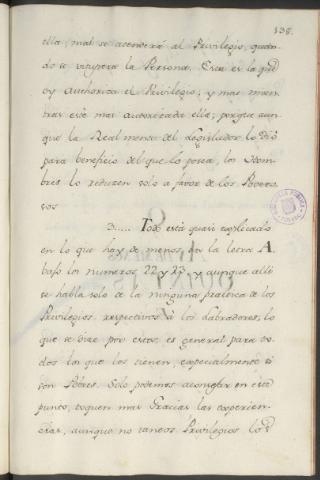 138.
ella, mal se atenderá al Privilegio, quan-
do se vitupera la Persona. Esta es la que
oy Authoriza el Privilegio; y mas mien-
tras esté mas autorizada ella; porque aun-
que la Real mente del Legislador lo dió
para beneficio del que lo posea, los Hom-
bres lo reducen solo a favor de los Podero-
sos
Todo está quasi explicado
en lo que hay de menos, en la letra A.
bajo los numeros 22 y 23, y aunque alli
se habla solo de la ninguna practica de los
Privilegios, respectivos á los Labradores, lo
que se dixe por estos, es general para to-
dos los que los tienen, especialmente si
son Pobres. Solo podemos aconsejar en este
punto, toquen mas Gracias las experien-
cias, aunque no tantos Privilegios los